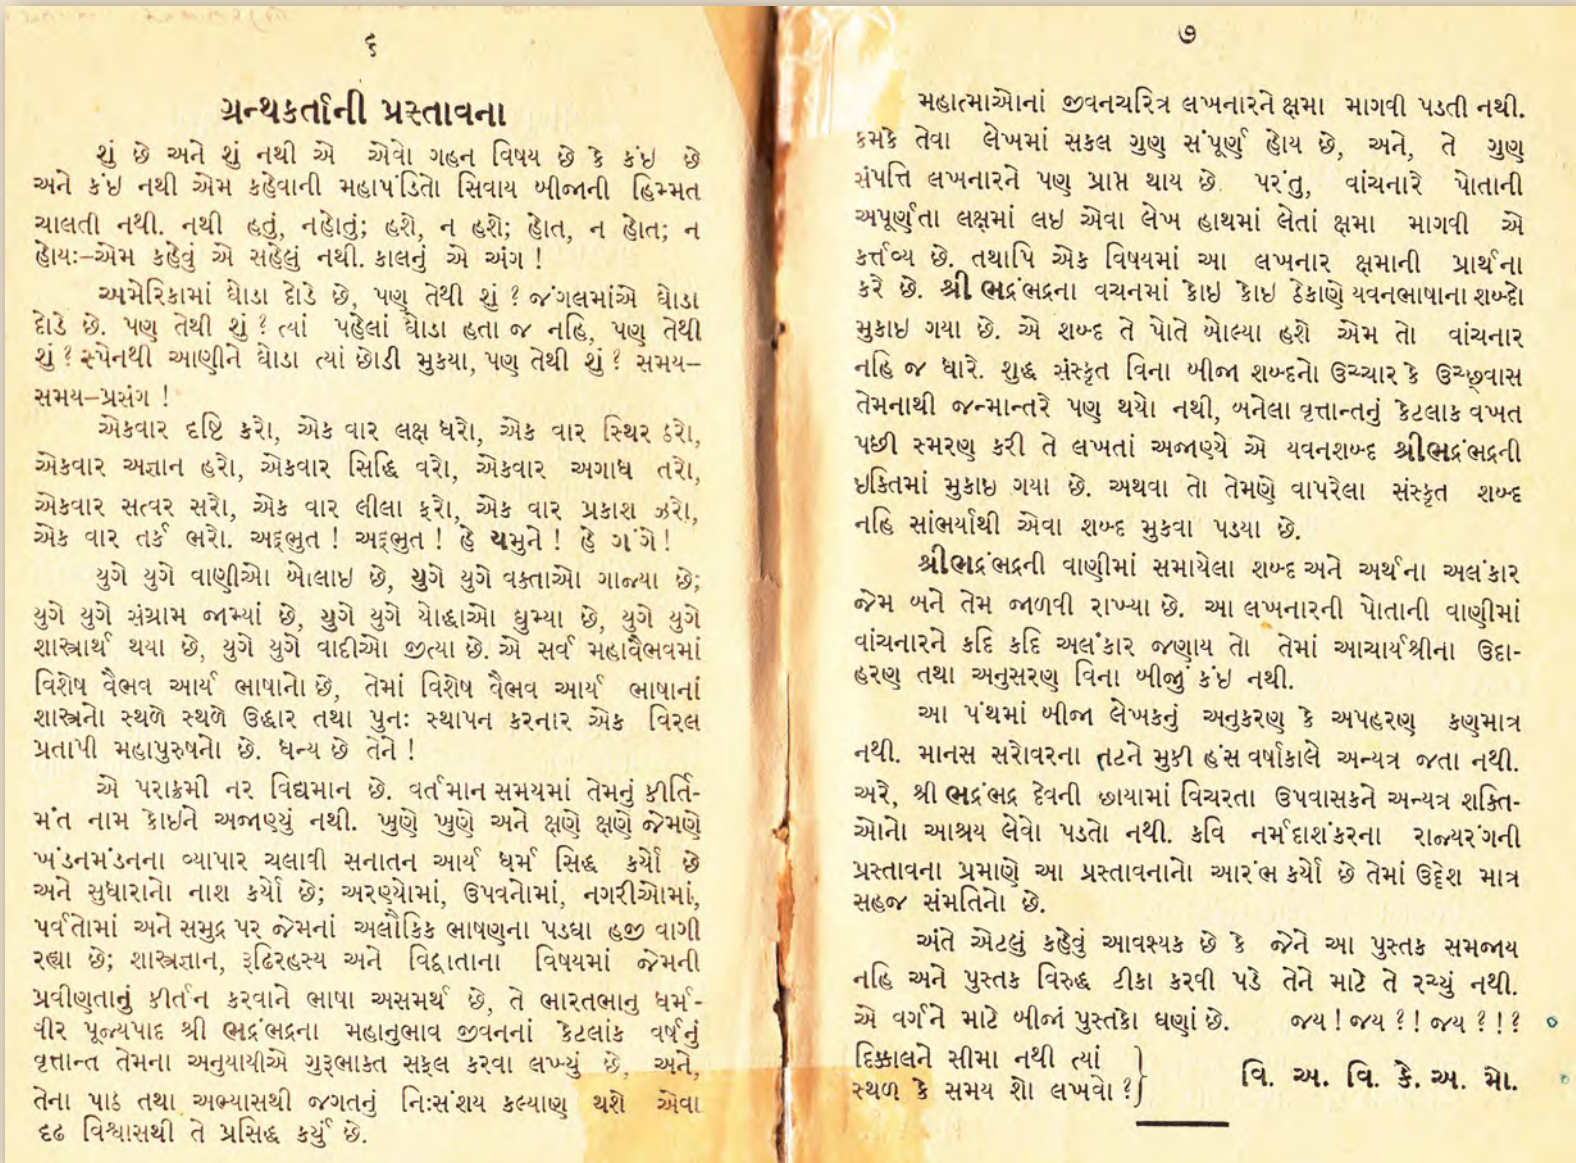 ૬
ગ્રન્થકર્તાની પ્રસ્તાવના
શું છે અને શું નથી એ એવો ગહન વિષય છે કે કંઇ છે
અને કંઇ નથી એમ કહેવાની મહાપંડિતો સિવાય બીજાની હિમ્મત
ચાલતી નથી. નથી હતું, નહોતું; હશે, ન હશે; હોત, ન હોત; ન
હોયઃ–એમ કહેવું એ સહેલું નથી. કાલનું એ અંગ !
અમેરિકામાં ઘોડા દોડે છે, પણ તેથી શું ? જંગલમાંએ ઘોડા
દોડે છે. પણ તેથી શું ? ત્યાં પહેલાં ઘોડા હતા જ નહિ, પણ તેથી
શું ? સ્પેનથી આણીને ઘોડા ત્યાં છોડી મુકયા, પણ તેથી શું ? સમય–
સમય–પ્રસંગ !
એકવાર દષ્ટિ કરો, એક વાર લક્ષ ધરો, એક વાર સ્થિર ઠરો,
એકવાર અજ્ઞાન હરો, એકવાર સિદ્ધિ વરો, એકવાર અગાધ તરો,
એકવાર સત્વર સરો, એક વાર લીલા ફરો, એક વાર પ્રકાશ ઝરો,
એક વાર તર્ક ભરો. અદ્દભુત ! અદ્દભુત ! હે યમુને ! હે ગંગે !
યુગે યુગે વાણીઓ બોલાઇ છે, યુગે યુગે વક્તાઓ ગાજ્યા છે;
યુગે યુગે સંગ્રામ જામ્યાં છે, યુગે યુગે યોદ્ધાઓ ઘુમ્યા છે, યુગે યુગે
શાસ્ત્રાર્થ થયા છે, યુગે યુગે વાદીઓ જીત્યા છે. એ સર્વ મહાવૈભવમાં
વિશેષ વૈભવ આર્ય ભાષાનો છે, તેમાં વિશેષ વૈભવ આર્ય ભાષાનાં
શાસ્ત્રનો સ્થળે સ્થળે ઉદ્ધાર તથા પુનઃ સ્થાપન કરનાર એક વિરલ
પ્રતાપી મહાપુરુષનો છે. ધન્ય છે તેને !
એ પરાક્રમી નર વિદ્યમાન છે. વર્તમાન સમયમાં તેમનું કીર્તિ-
મંત નામ કોઇને અજાણ્યું નથી. ખુણે ખુણે અને ક્ષણે ક્ષણે જેમણે
ખંડનમંડનના વ્યાપાર ચલાવી સનાતન આર્ય ધર્મ સિદ્ધ કર્યો છે
અને સુધારાનો નાશ કર્યો છે; અરણ્યોમાં, ઉપવનોમાં, નગરીઓમાં,
પર્વતોમાં અને સમુદ્ર પર જેમનાં અલૌકિક ભાષણના પડઘા હજી વાગી
રહ્યા છે; શાસ્ત્રજ્ઞાન, રૂઢિરહસ્ય અને વિદ્વાતાના વિષયમાં જેમની
પ્રવીણતાનું કીર્તન કરવાને ભાષા અસમર્થ છે, તે ભારતભાનુ ધર્મ-
વીર પૂજ્યપાદ શ્રી ભદ્રંભદ્રના મહાનુભાવ જીવનનાં કેટલાંક વર્ષનું
વૃત્તાન્ત તેમના અનુયાયીએ ગુરૂભાક્ત સફલ કરવા લખ્યું છે, અને,
તેના પાઠ તથા અભ્યાસથી જગતનું નિઃસંશય કલ્યાણ થશે એવા
દઢ વિશ્વાસથી તે પ્રસિદ્ધ કર્યું છે.
૭
મહાત્માઓનાં જીવનચરિત્ર લખનારને ક્ષમા માગવી પડતી નથી.
કમકે તેવા લેખમાં સકલ ગુણ સંપૂર્ણ હોય છે, અને, તે ગુણ
સંપત્તિ લખનારને પણ પ્રાપ્ત થાય છે પરંતુ, વાંચનારે પોતાની
અપૂર્ણતા લક્ષમાં લઇ એવા લેખ હાથમાં લેતાં ક્ષમા માગવી એ
કર્ત્તવ્ય છે. તથાપિ એક વિષયમાં આ લખનાર ક્ષમાની પ્રાર્થના
કરે છે. શ્રી ભદ્રંભદ્રના વચનમાં કોઇ કોઇ ઠેકાણે યવનભાષાના શબ્દો
મુકાઇ ગયા છે. એ શબ્દ તે પોતે બોલ્યા હશે એમ તો વાંચનાર
નહિ જ ધારે. શુદ્ધ સંસ્કૃત વિના બીજા શબ્દનો ઉચ્ચાર કે ઉચ્છ્વાસ
તેમનાથી જન્માન્તરે પણ થયો નથી, બનેલા વૃત્તાન્તનું કેટલાક વખત
પછી સ્મરણ કરી તે લખતાં અજાણ્યે એ યવનશબ્દ શ્રીભદ્રંભદ્રની
ઇક્તિમાં મુકાઇ ગયા છે. અથવા તો તેમણે વાપરેલા સંસ્કૃત શબ્દ
નહિ સાંભર્યાથી એવા શબ્દ મુકવા પડયા છે.
શ્રીભદ્રંભદ્રની વાણીમાં સમાયેલા શબ્દ અને અર્થના અલંકાર
જેમ બને તેમ જાળવી રાખ્યા છે. આ લખનારની પોતાની વાણીમાં
વાંચનારને કદિ કદિ અલંકાર જણાય તો તેમાં આચાર્યશ્રીના ઉદા-
હરણ તથા અનુસરણ વિના બીજું કંઇ નથી.
આ પંથમાં બીજા લેખકનું અનુકરણ કે અપહરણ કણમાત્ર
નથી. માનસ સરોવરના તટને મુકી હંસ વર્ષાકાલે અન્યત્ર જતા નથી.
અરે, શ્રી ભદ્રંભદ્ર દેવની છાયામાં વિચરતા ઉપવાસકને અન્યત્ર શક્તિ-
ઓનો આશ્રય લેવો પડતો નથી. કવિ નર્મદાશંકરના રાજ્યરંગની
પ્રસ્તાવના પ્રમાણે આ પ્રસ્તાવનાનો આરંભ કર્યો છે તેમાં ઉદ્દેશ માત્ર
સહજ સંમતિનો છે.
અંતે એટલું કહેવું આવશ્યક છે કે જેને આ પુસ્તક સમજાય
નહિ અને પુસ્તક વિરુદ્ધ ટીકા કરવી પડે તેને માટે તે રચ્યું નથી.
એ વર્ગને માટે બીજાં પુસ્તકો ઘણાં છે. જય ! જય ? ! જય ? ! ?
દિક્કાલને સીમા નથી ત્યાં
સ્થળ કે સમય શો લખવો ?
વિ. અ. વિ. કે. અ. મો.